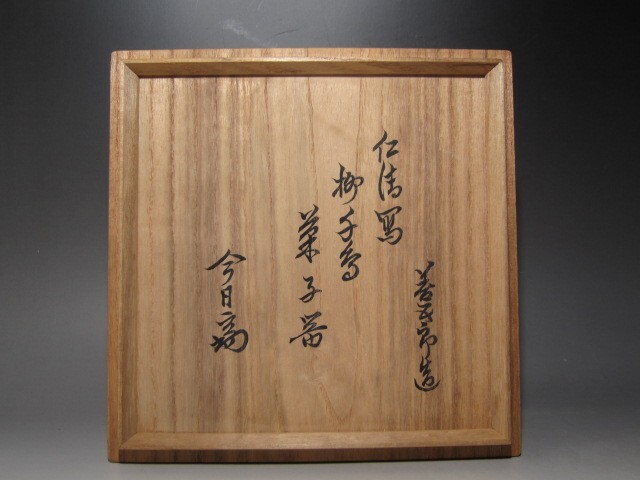 善五郎造
仁清写
柳千鳥
菓子器
今日庵